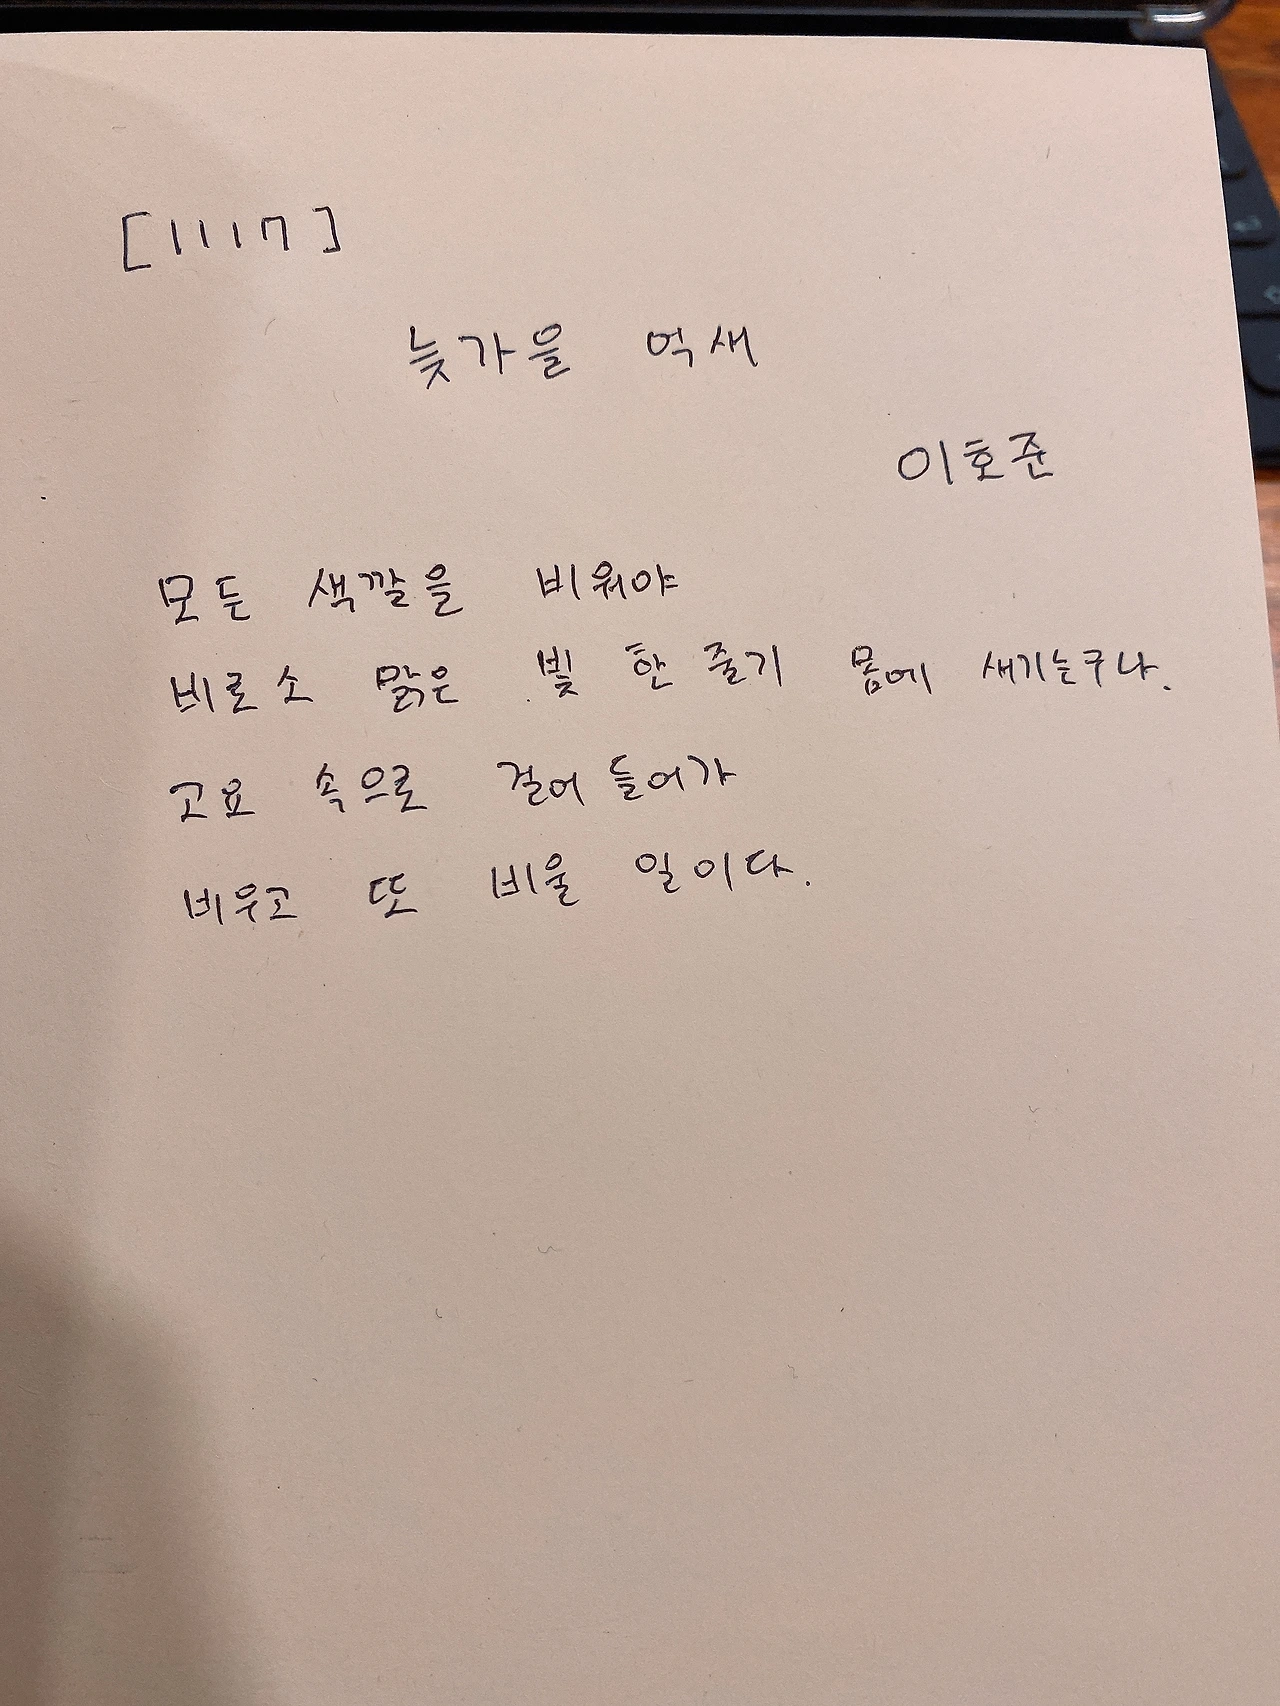 [1117]
늦가을 억새
이호준
모든 색깔을 비워야
비로소 맑은 빛 한 줄기 몸에 새기는구나.
고요 속으로 걸어 들어가
비우고 또 비울 일이다.